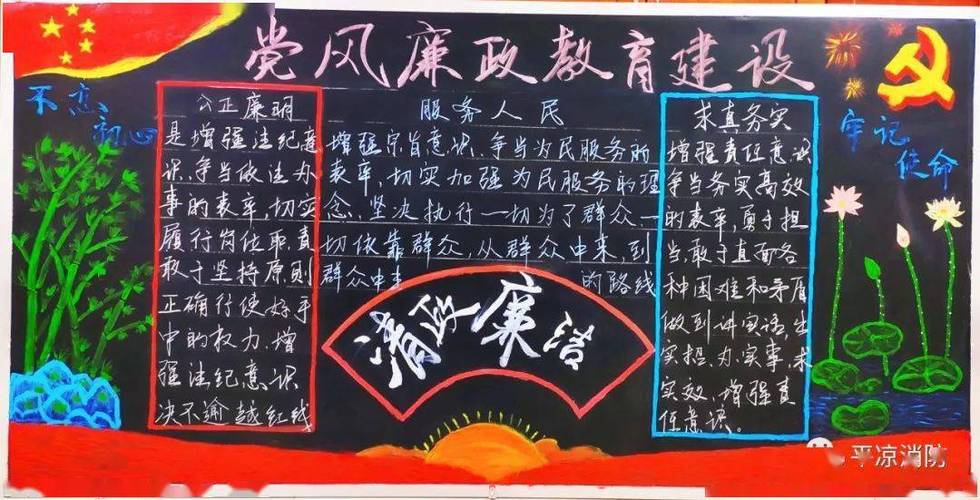 党风廉政教育建设
不忘
初心
公正廉明
是增强法纪意
识、争当依法办
事的表率,切实
履行岗位职责
敢于坚持原则
正确行使好手
中的权力、增
强法纪意识
决不逾越红线
服务人民
增强宗旨意识、争当为民服务的
表率,切实加强为民服务的理
念、坚决执行一切为了群众、一
切依靠群众,从群众中来,到
群众中去 的路线
清政廉洁
求真务实
增强责任意识
争当务实高效
的表率,勇于担
当、敢于直面各
种困难和矛盾
做到讲实话,出
实招、为实事、求
实效、增强责
任意识。
牢记
使命
平凉消防